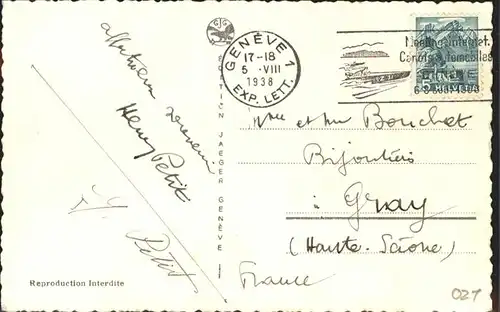 affectueux souvenir
Henry Petit
Y. Petit
Reproduction Interdite
G G
EDITION JAEGER GENÈVE
GENÈVE 1
17-18
5 · VIII
1938
EXP. LETT.
Meeting internat.
Canots automobiles
GENÈVE
Mme et Mr Bouchet
Bijoutiers
à Gray
(Haute-Saône)
France
027